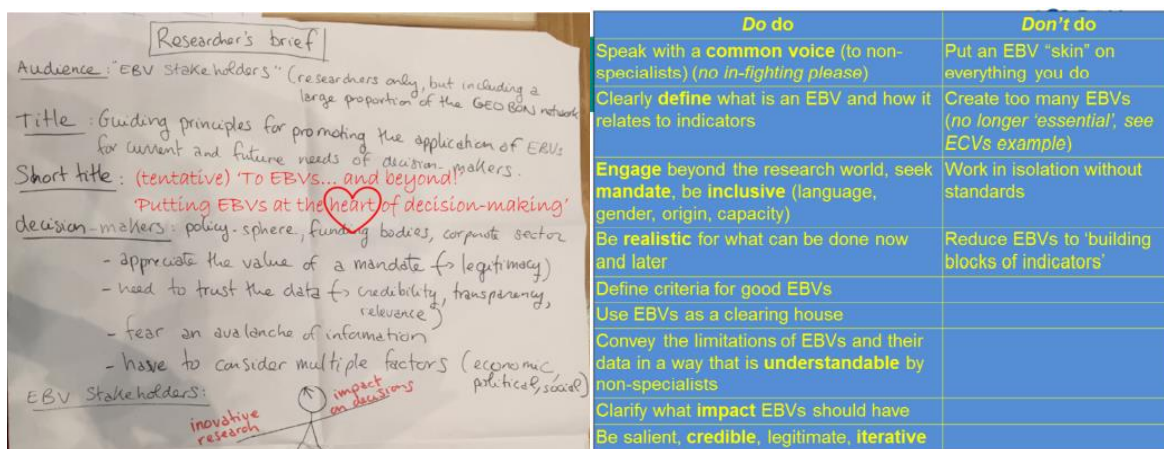 Researcher's brief
Audience: "EBV Stakeholders" (researchers only, but including a
large proportion of the GEO BON network
Title: Guiding principles for promoting the application of EBVs
for current and future needs of decision-makers.
Short title: (tentative) 'To EBVs... and beyond!'
'Putting EBVs at the heart of decision-making'
decision-makers: policy-sphere, funding bodies, corporate sector
- appreciate the value of a mandate (→ legitimacy)
- need to trust the data (→ credibility, transparency,
relevance)
- fear an avalanche of information
- have to consider multiple factors (economic,
political, social)
EBV Stakeholders:
inovative
research
impact
on decisions
Do do
Don't do
Speak with a common voice (to non-
specialists) (no in-fighting please)
Put an EBV “skin” on
everything you do
Clearly define what is an EBV and how it
relates to indicators
Create too many EBVs
(no longer ‘essential’, see
ECVs example)
Engage beyond the research world, seek
mandate, be inclusive (language,
gender, origin, capacity)
Work in isolation without
standards
Be realistic for what can be done now
and later
Reduce EBVs to ‘building
blocks of indicators’
Define criteria for good EBVs
Use EBVs as a clearing house
Convey the limitations of EBVs and their
data in a way that is understandable by
non-specialists
Clarify what impact EBVs should have
Be salient, credible, legitimate, iterative